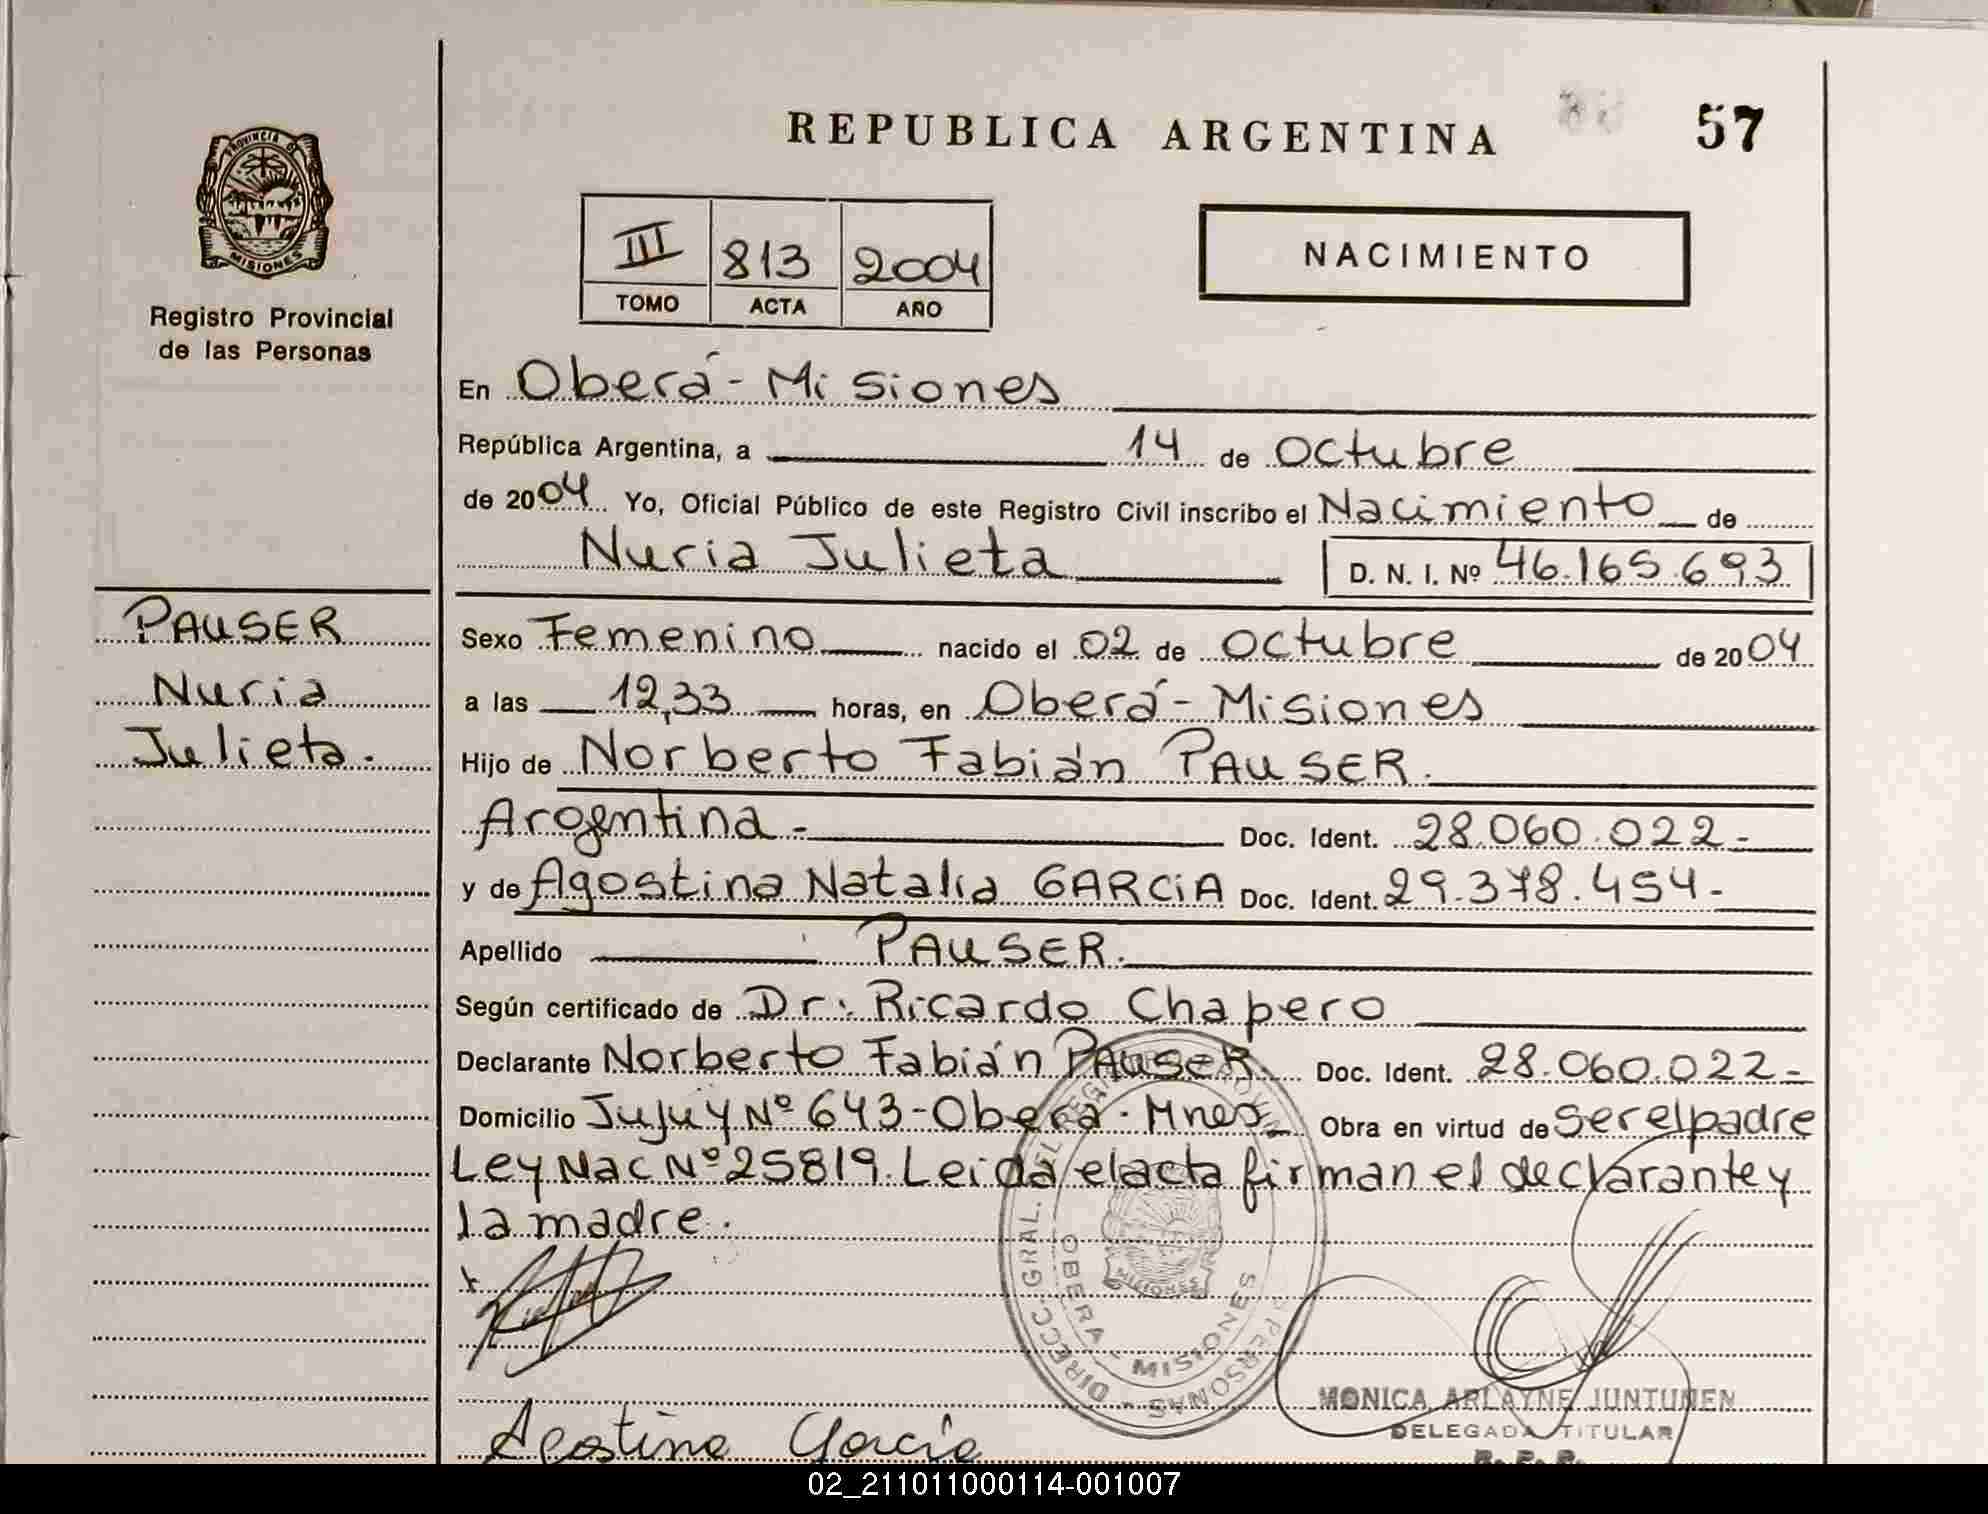 REPUBLICA ARGENTINA
57
PROVINCIA DE
MISIONES
Registro Provincial
de las Personas
III 813 2004
TOMO ACTA AÑO
NACIMIENTO
En Oberá - Misiones
República Argentina, a 14 de octubre
de 2004 Yo, Oficial Público de este Registro Civil inscribo el Nacimiento de
Nuria Julieta D. N. I. Nº 46.165.693
PAUSER
Nuria
Julieta.
Sexo Femenino nacido el 02 de octubre de 2004
a las 12,33 horas, en Oberá - Misiones
Hijo de Norberto Fabián PAUSER.
Argentina - Doc. Ident. 28.060.022-
y de Agostina Natalia GARCIA Doc. Ident. 29.378.454-
Apellido PAUSER.
Según certificado de Dr: Ricardo Chapero
Declarante Norberto Fabián PAUSER. Doc. Ident. 28.060.022-
Domicilio Jujuy Nº 643 - Oberá - Mnes Obra en virtud de ser el padre
Ley Nac Nº 25819. Leida el acta firman el declarante y
la madre.
DIRECC. GRAL. DEL REG. PERSONAS
OBERA - MISIONES
MISIONES
MONICA ARLAYNE JUNTUNEN
DELEGADA TITULAR
R. P. P.
Agostina García
02_211011000114-001007